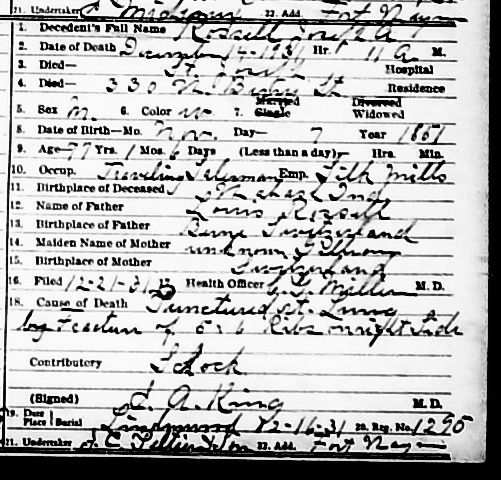 21. Undertaker 22. Add. Fort Wayne
1. Decedent's Full Name Rossell Joseph A
2. Date of Death December 14-1931 Hr. 11 A. M.
3. Died— St. Joseph Hospital
4. Died— 330 W. St Residence
5. Sex M. 6. Color W 7. Married Single Divorced Widowed
8. Date of Birth—Mo. Nov. Day— 7 Year
9. Age— 77 Yrs. 1 Mos. Days (Less than a day)— Hrs. Min.
10. Occup. Traveling Salesman Emp. Silk Mills
11. Birthplace of Deceased Ind
12. Name of Father Louis Rossell
13. Birthplace of Father Berne Switzerland
14. Maiden Name of Mother unknown
15. Birthplace of Mother Switzerland
16. Filed 12-21-31 17. Health Officer Miller M. D.
18. Cause of Death Punctured rt. Lung
by Fracture of 5 & 6 Ribs on right Side
Contributory Shock
(Signed) A. King M. D.
19. Date Place Burial Lindenwood 12-16-31 20. Reg. No. 1295
21. Undertaker & Son 22. Add. Fort Wayne